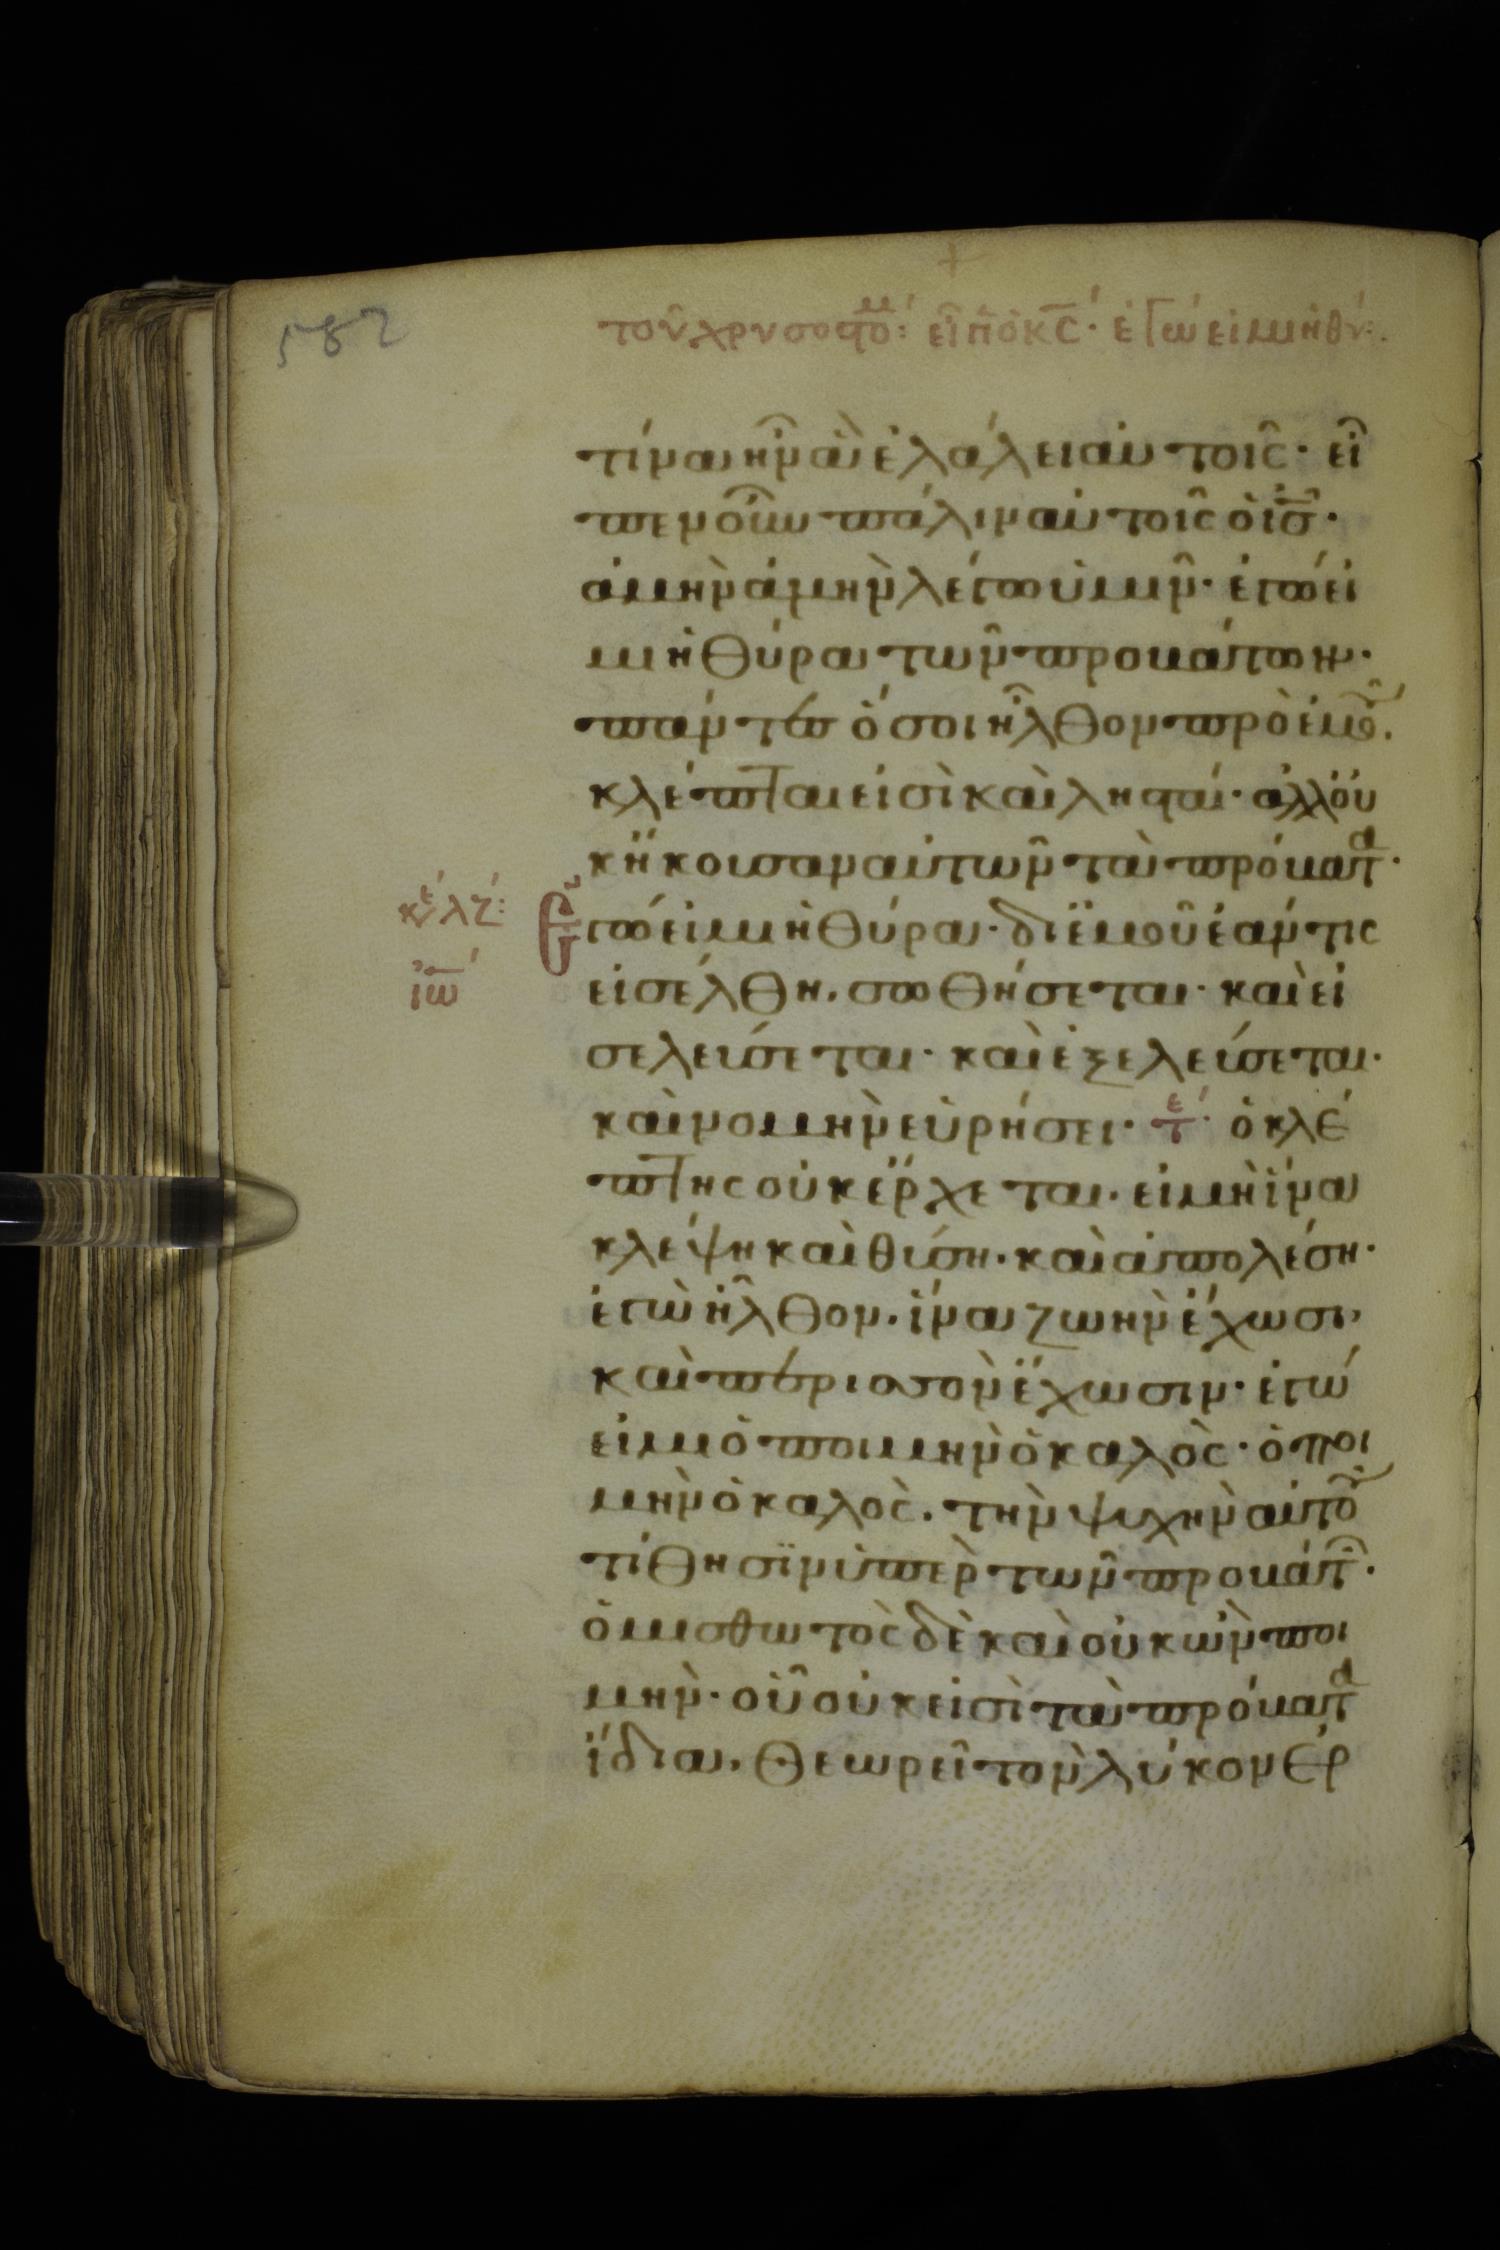 582
τοῦ χρυσοστομ´: εἶπ ὁ κς´· ἐγώ εἰμι ἡ θυ´:.
τίνα ἦν ἃ ἐλάλει αὐτοῖς· εἶ
πεν οὖν πάλιν αὐτοῖς ὁ ις·
ἀμὴν ἀμὴν λέγω ὑμῖν· ἐγώ εἰ
μι ἡ θύρα τῶν προβάτων·
πάντες ὅσοι ἦλθον πρὸ ἐμοῦ.
κλέπται εἰσὶ καὶ λησταί· ἀλλ οὐ
κ ἤκουσαν αὐτῶν τὰ πρόβατα·
Ἐγώ εἰμι ἡ θύρα· δι ἐμοῦ ἐάν τις
κε´ λζ´:
ιω´
εἰσέλθη. σωθήσεται· καὶ εἰ
σελεύσεται· καὶ ἐξελεύσεται·
καὶ νομὴν εὑρήσει· τε´· ὁ κλέ
πτης οὐκ ἔρχεται. εἰ μὴ ἵνα
κλέψη καὶ θύση. καὶ ἀπολέση·
ἐγὼ ἦλθον. ἵνα ζωὴν ἔχωσι,
καὶ περισσὸν ἔχωσιν· ἐγώ
εἰμι ὁ ποιμὴν ὁ καλὸς· ὁ ποι
μὴν ὁ καλὸς. τὴν ψυχὴν αὐτοῦ
τίθησϊν ὑπὲρ τῶν προβάτ·
ὁ μισθωτὸς δὲ καὶ οὐκ ὢν ποι
μὴν· οὗ οὐκ εἰσὶ τὰ πρόβατα
ἴδια. θεωρεῖ τὸν λύκον ἐρ